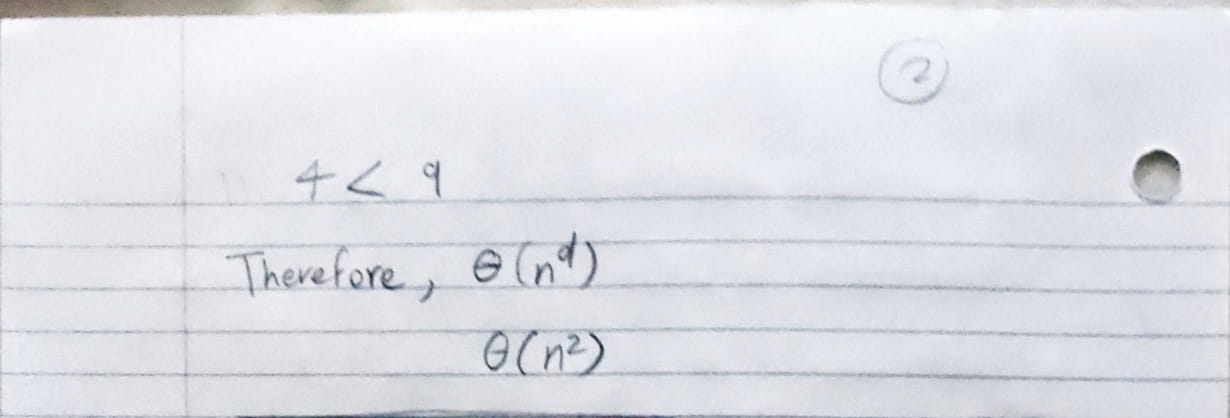 2
4 < 9
Therefore, Θ(n^d)
Θ(n²)